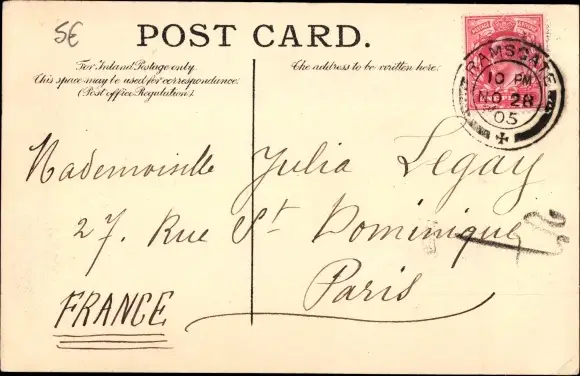 5€
POST CARD.
For Inland Postage only.
This space may be used for correspondence.
(Post office Regulation).
The address to be written here.
RAMSGATE
10 PM
NO 28
05
Mademoiselle Julia Legay
27. Rue St Dominique
Paris
FRANCE